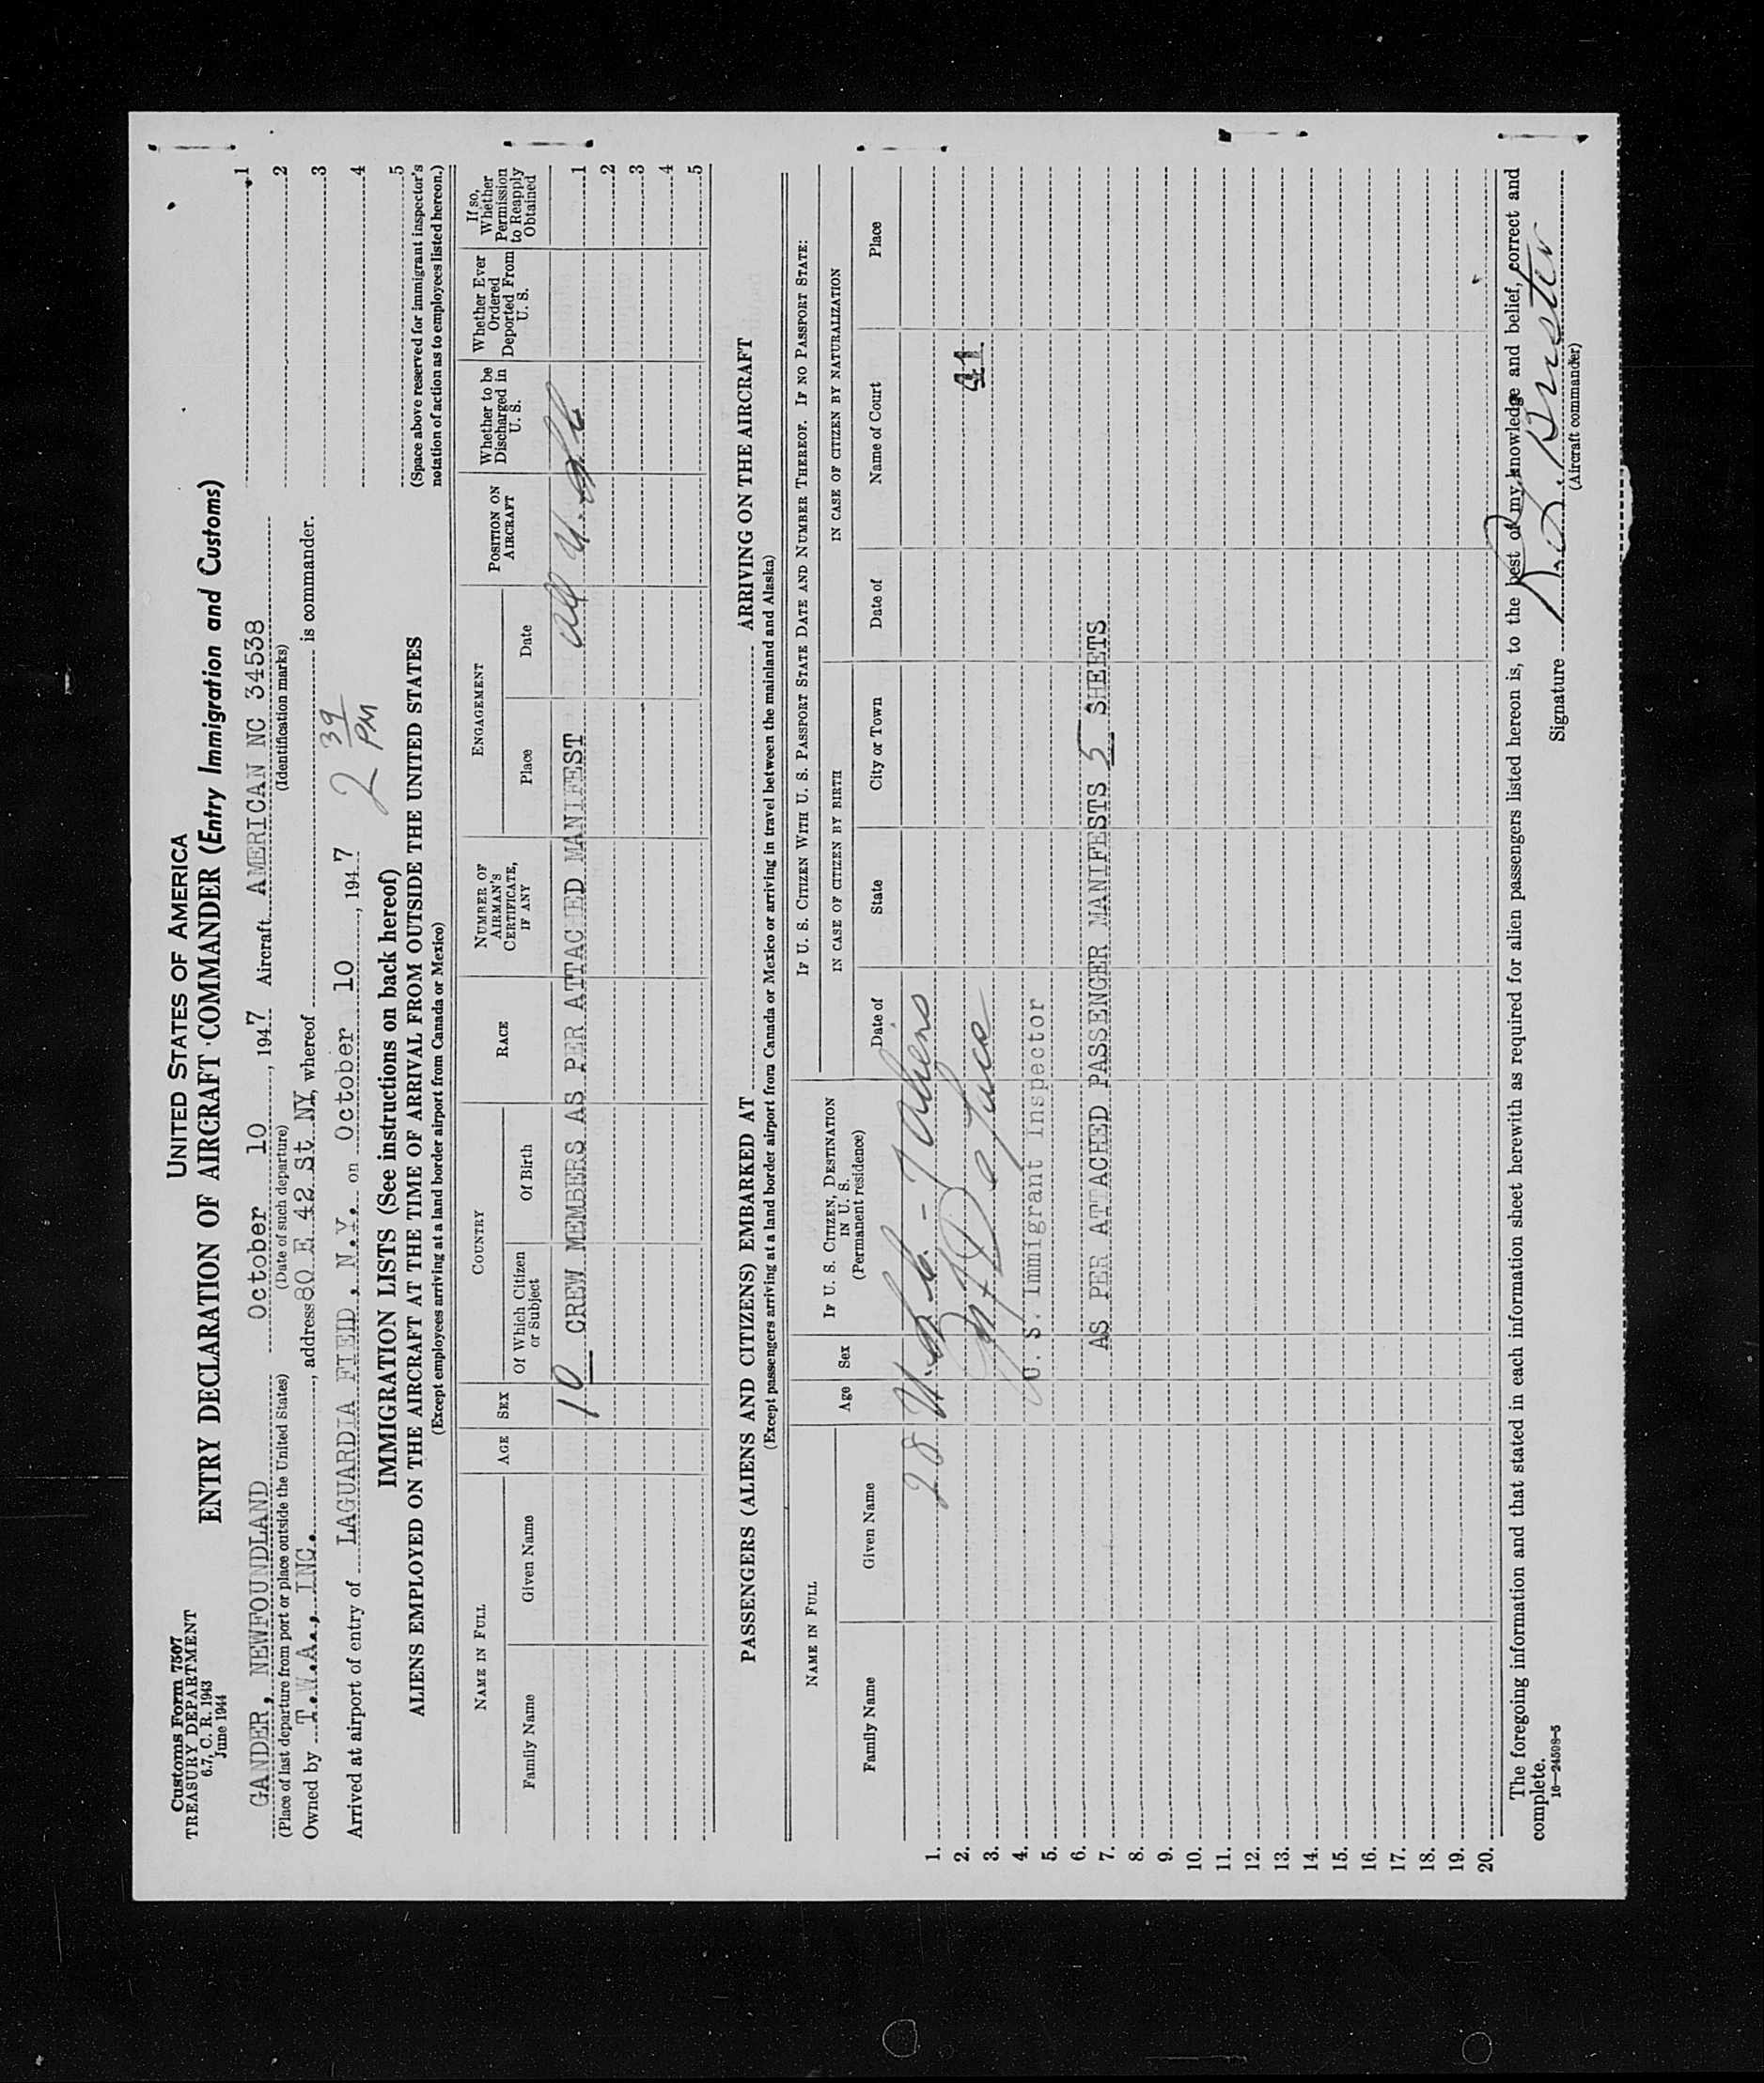 Customs Form 7507
TREASURY DEPARTMENT
6.7, C. R. 1943
June 1944
UNITED STATES OF AMERICA
ENTRY DECLARATION OF AIRCRAFT COMMANDER (Entry Immigration and Customs)
GANDER, NEWFOUNDLAND October 10, 1947 Aircraft AMERICAN NC 34538
(Place of last departure from port or place outside the United States) (Date of such departure) (Identification marks)
Owned by T.W.A., INC., address 80 E 42 St NY, whereof is commander.
Arrived at airport of entry of LAGUARDIA FIELD, N.Y. on October 10, 1947. 2 39 PM
1
2
3
4
5
(Space above reserved for immigrant inspector's
notation of action as to employees listed hereon.)
IMMIGRATION LISTS (See instructions on back hereof)
ALIENS EMPLOYED ON THE AIRCRAFT AT THE TIME OF ARRIVAL FROM OUTSIDE THE UNITED STATES
(Except employees arriving at a land border airport from Canada or Mexico)
NAME IN FULL
Family Name
Given Name
AGE
SEX
COUNTRY
Of Which Citizen
or Subject
Of Birth
RACE
NUMBER OF
AIRMAN'S
CERTIFICATE,
IF ANY
ENGAGEMENT
Place
Date
POSITION ON
AIRCRAFT
Whether to be
Discharged in
U. S.
Whether Ever
Ordered
Deported From
U. S.
If so,
Whether
Permission
to Reapply
Obtained
10 CREW MEMBERS AS PER ATTACHED MANIFEST all U.S.C. 1
2
3
4
5
PASSENGERS (ALIENS AND CITIZENS) EMBARKED AT ARRIVING ON THE AIRCRAFT
(Except passengers arriving at a land border airport from Canada or Mexico or arriving in travel between the mainland and Alaska)
NAME IN FULL
Family Name
Given Name
Age
Sex
IF U. S. CITIZEN, DESTINATION
IN U. S.
(Permanent residence)
IF U. S. CITIZEN WITH U. S. PASSPORT STATE DATE AND NUMBER THEREOF. IF NO PASSPORT STATE:
IN CASE OF CITIZEN BY BIRTH
Date of
State
City or Town
IN CASE OF CITIZEN BY NATURALIZATION
Date of
Name of Court
Place
1. 28 U.S.C. - 7 Aliens
2.
3.
4.
5. U. S. Immigrant Inspector
6.
7. AS PER ATTACHED PASSENGER MANIFESTS 5 SHEETS
8.
9.
10.
11.
12.
13.
14.
15.
16.
17.
18.
19.
20.
The foregoing information and that stated in each information sheet herewith as required for alien passengers listed hereon is, to the best of my knowledge and belief, correct and
complete.
16—24598-5
Signature
(Aircraft commander)